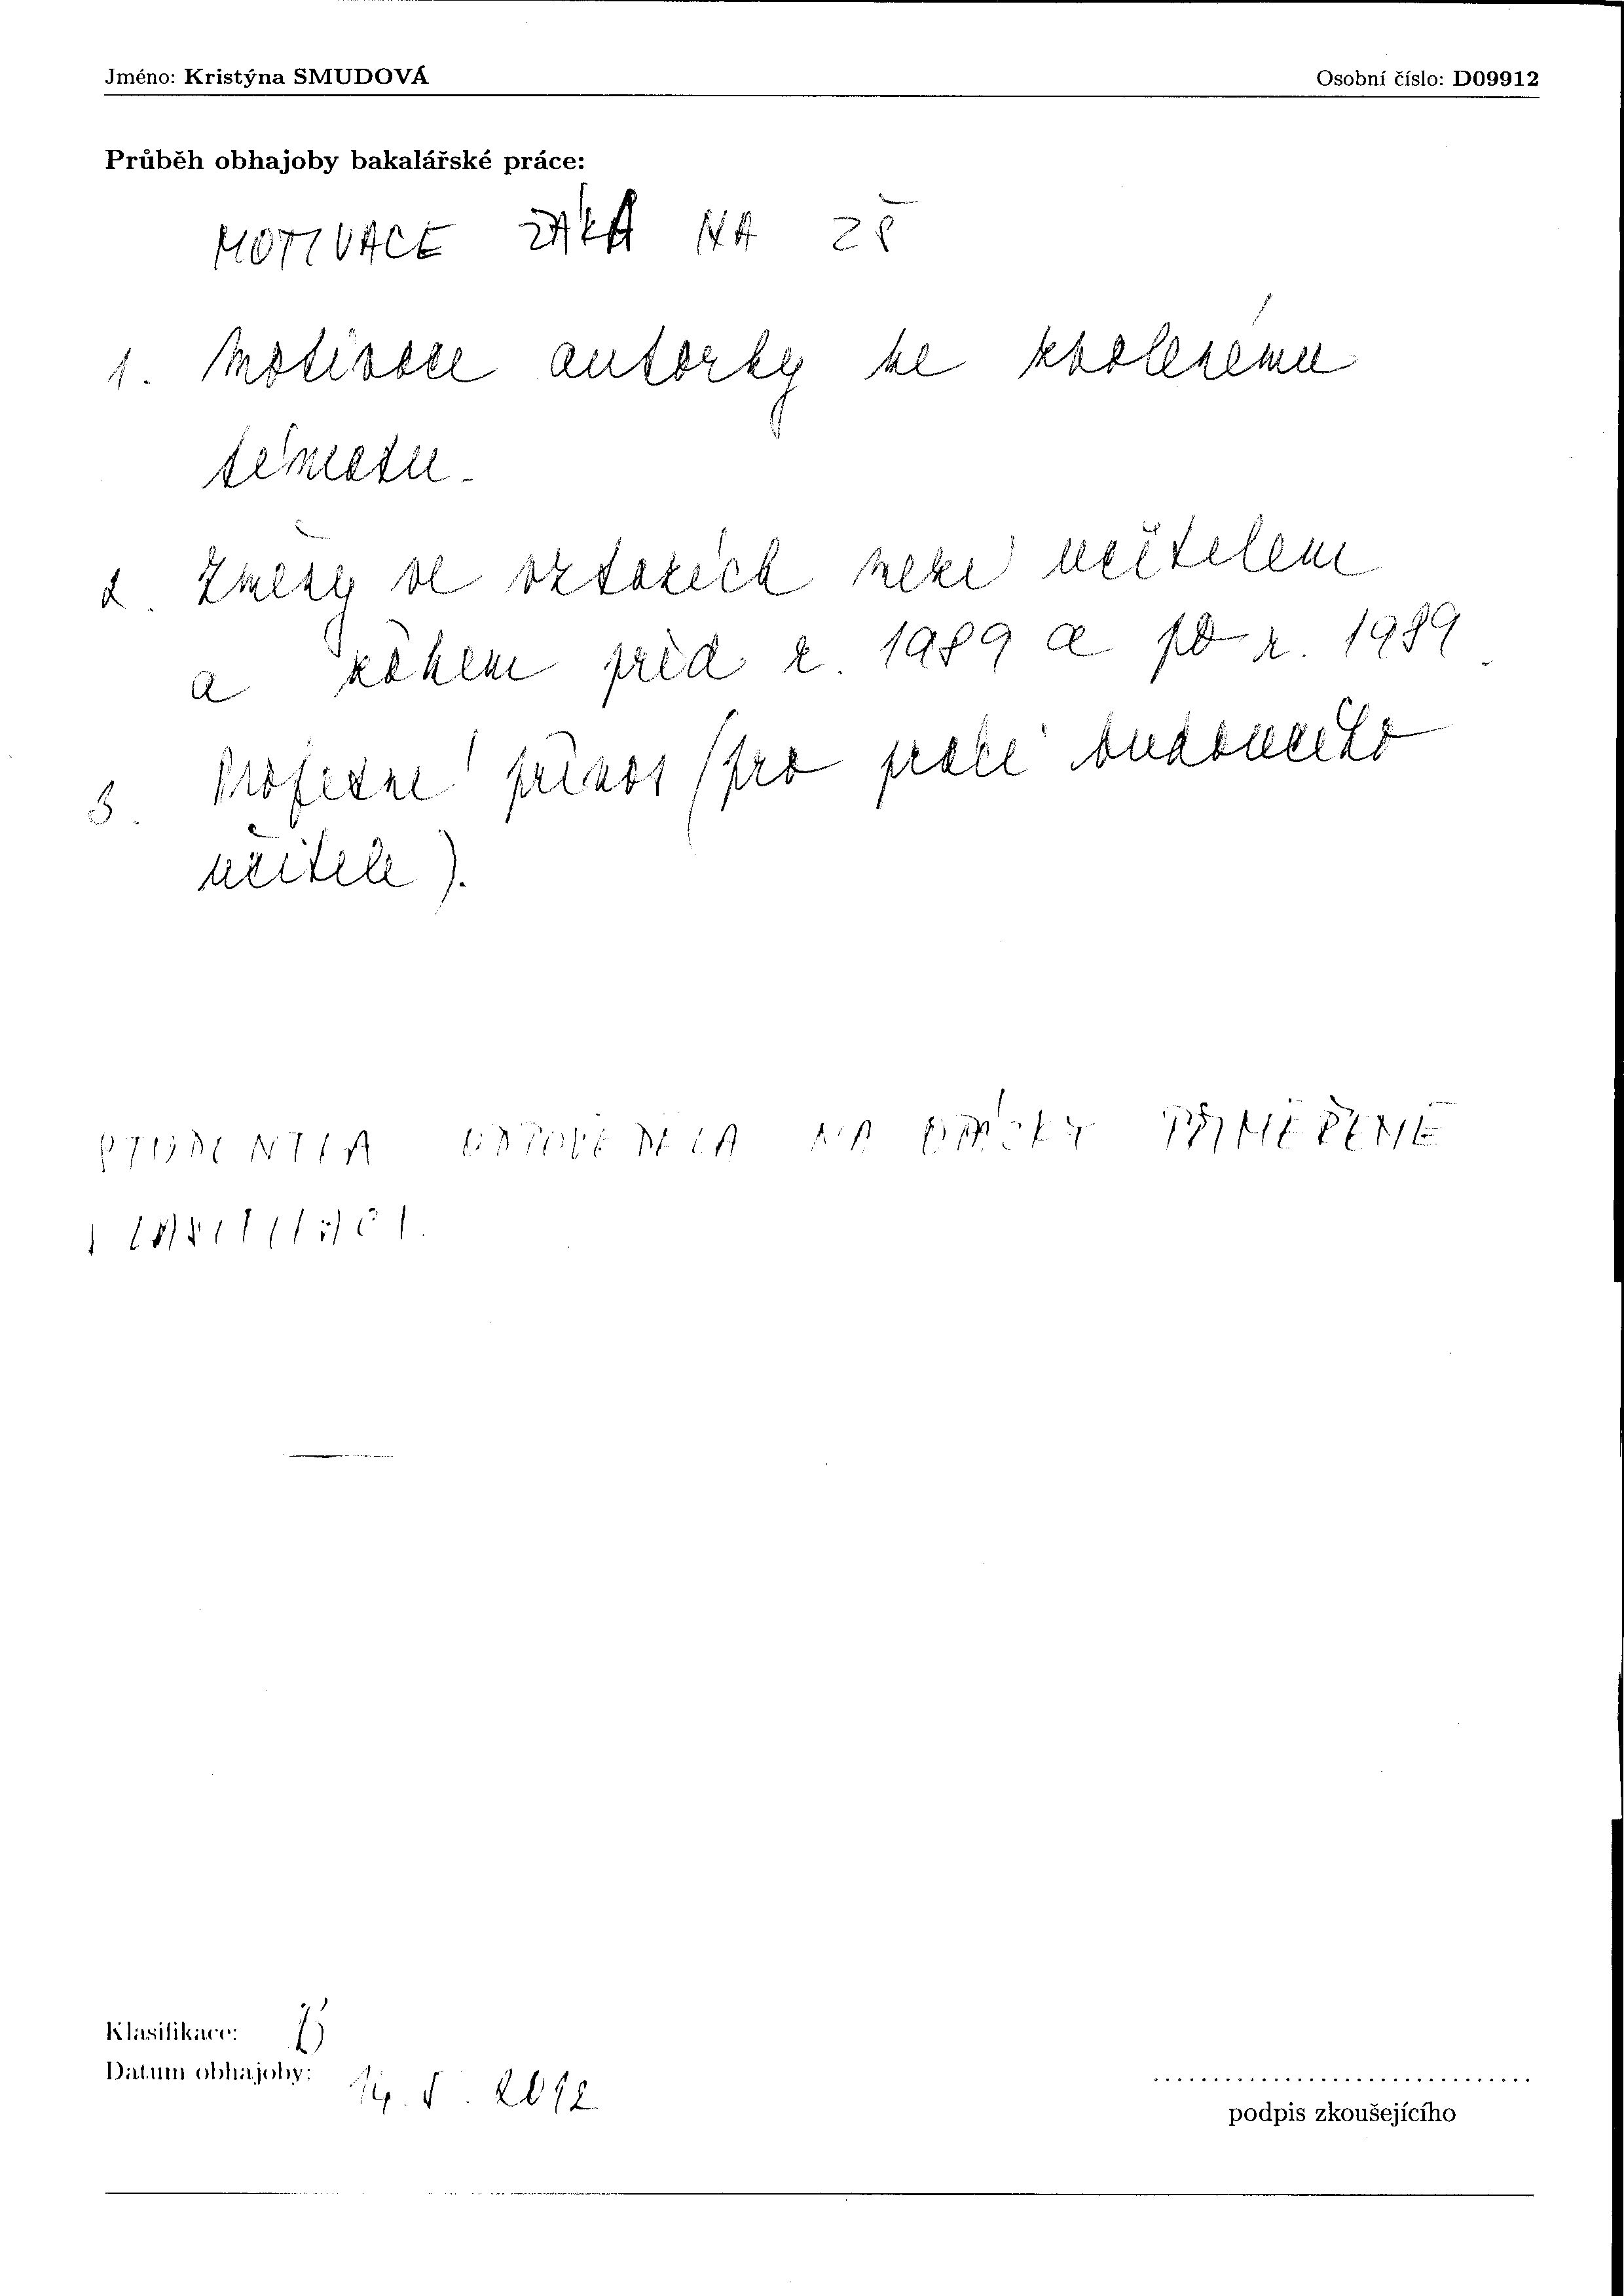 Jméno: Kristýna SMUDOVÁ Osobní číslo: D09912
Průběh obhajoby bakalářské práce:
MOTIVACE ŽÁKA NA ZŠ
1. Motivace autorky ke zvolenému
tématu.
2. Změny ve vztazích mezi učitelem
a žákem před r. 1989 a po r. 1989.
3. Profesní přínos (pro práci budoucího
učitele).
STUDENTKA ODPOVĚDĚLA NA OTÁZKY PŘIMĚŘENĚ
Klasifikace:
Datum obhajoby: 14. 5. 2012
podpis zkoušejícího